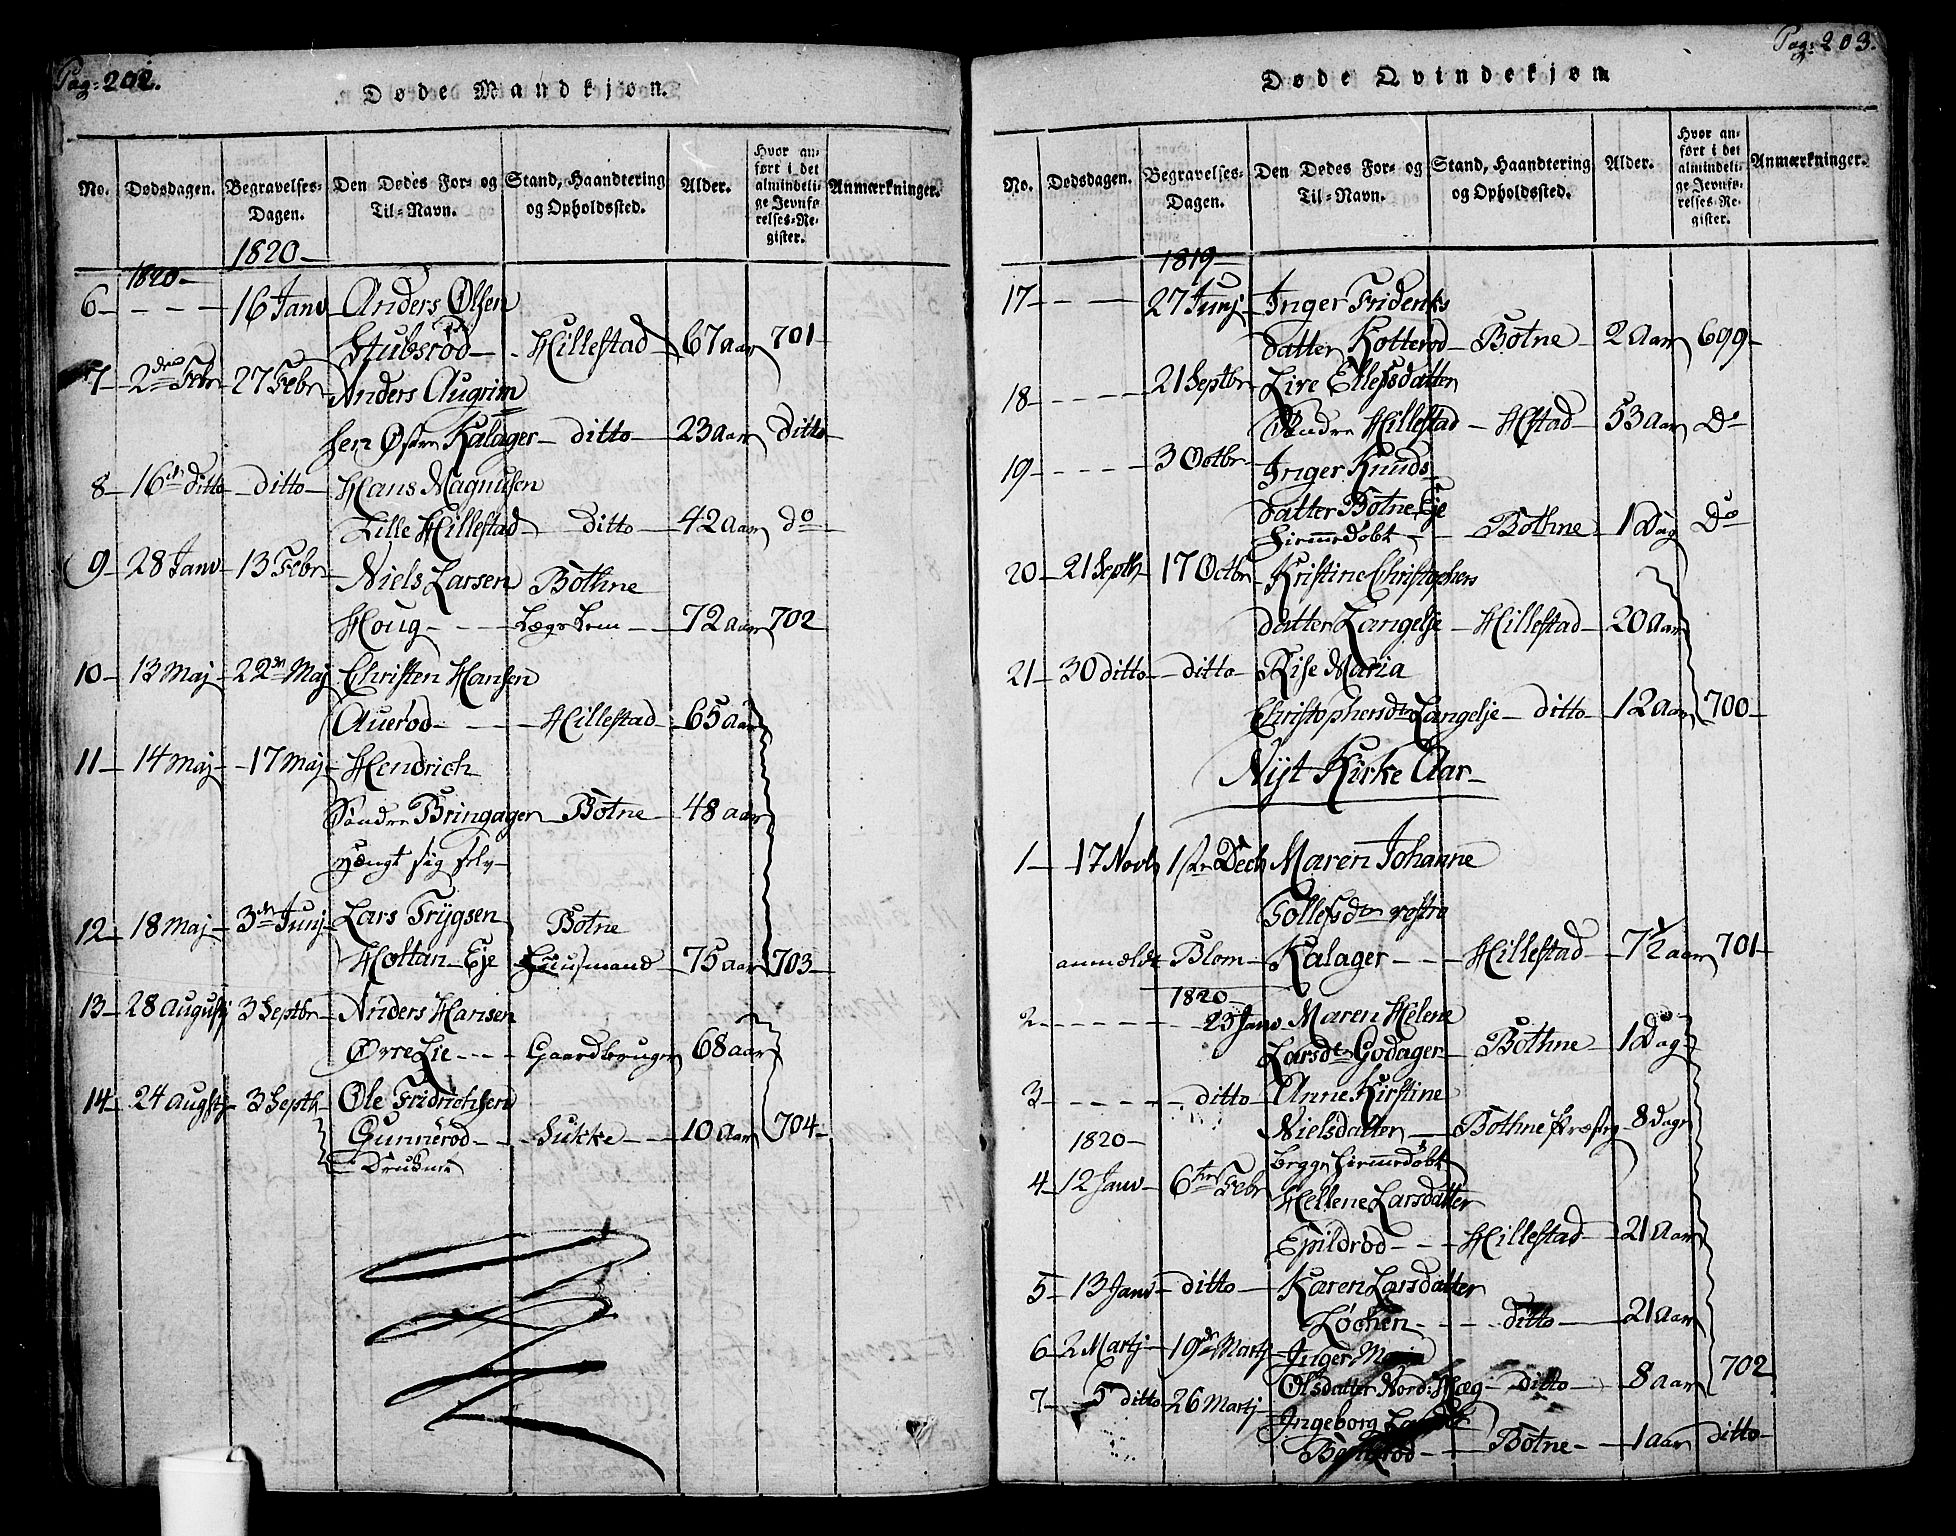 Pag: 202.
Døde Mandkjøn.
No. Dødsdagen. Begravelses-Dagen. Den Dødes For- og Til-Navn. Stand, Haandtering og Opholdssted. Alder. Hvor anført i det almindelige Jevnførelses-Register. Anmærkninger.
1820 1820
6 - - - 16 Janv Anders Olsen
Stubsrød Hillestad 67 Aar 701
7 2den Febr 27 Febr Anders Augrim
sen Østre Kalager ditto 23 Aar ditto
8 16de ditto ditto Hans Magnusen
Lille Hillestad ditto 42 Aar do
9 28 Janv 13 Febr Niels Larsen Bothne
Houg Lægs Lem 72 Aar 702
10 13 Maj 22n Maj Christen Hansen
Auerød Hillestad 65 Aar
11 14 Maj 17 Maj Hendrich
Søndre Bringager Botne 48 Aar
hængt sig selv
12 18 Maj 3de Junj Lars Trygsen Botne
Holtan Eje Huusmand 75 Aar 703
13 28 Augustj 3 Septbr Anders Hansen
Ørre Lie Gaardbruger 68 Aar
14 24 Augstj 3 Septb Ole Fridrichsen
Gunnerød Sukke 10 Aar 704
Druknet
Pag: 203.
Døde Qvindekjøn
No. Dødsdagen. Begravelses-Dagen. Den Dødes For- og Til-Navn. Stand, Haandtering og Opholdssted. Alder. Hvor anført i det almindelige Jevnførelses-Register. Anmærkninger.
1819
17 - - 27 Junj Inger Fridenks
datter Kotterød Botne 2 Aar 699
18 - - - - 21 Septbr Live Ellefsdatter
Søndre Hillestad Hstad 53 Aar Do
19 - - - - 3 Octbr Inger Knuds
datter Botne Eje
hiemmedøbt Bothne 1 Dag Do
20 21 Septb 17 Octbr Kristine Christophers
datter Langelje Hillestad 20 Aar
21 30 ditto ditto Lise Maria
Christophersdtr Langelje ditto 12 Aar 700
Nyt Kirke Aar
1 17 Novb 1ste Decb Maren Johanne
Tollefsdtr vestre
anmældt Blom Kalager Hillestad 7½ aar 701
1820
2 - - - - - 23 Janv Maren Helene
Larsdtr Godager Bothne 1 Dag
3 - - - - - ditto Anne Kirstine
Nielsdatter Bothne Præstg 8 Dage
1820 begge hiemmedøbt
4 12 Janv 6te Febr Hellene Larsdatter
Epildrød Hillestad 21 Aar
5 13 Janv ditto Karen Larsdatter
Løchen ditto 21 Aar
6 2 Martj 19de Martj Inger Maria
Olsdatter Nord: Hæg ditto 8 Aar 702
7 5 ditto 26 Martj Ingeborg
Botne 1 Aar ditto